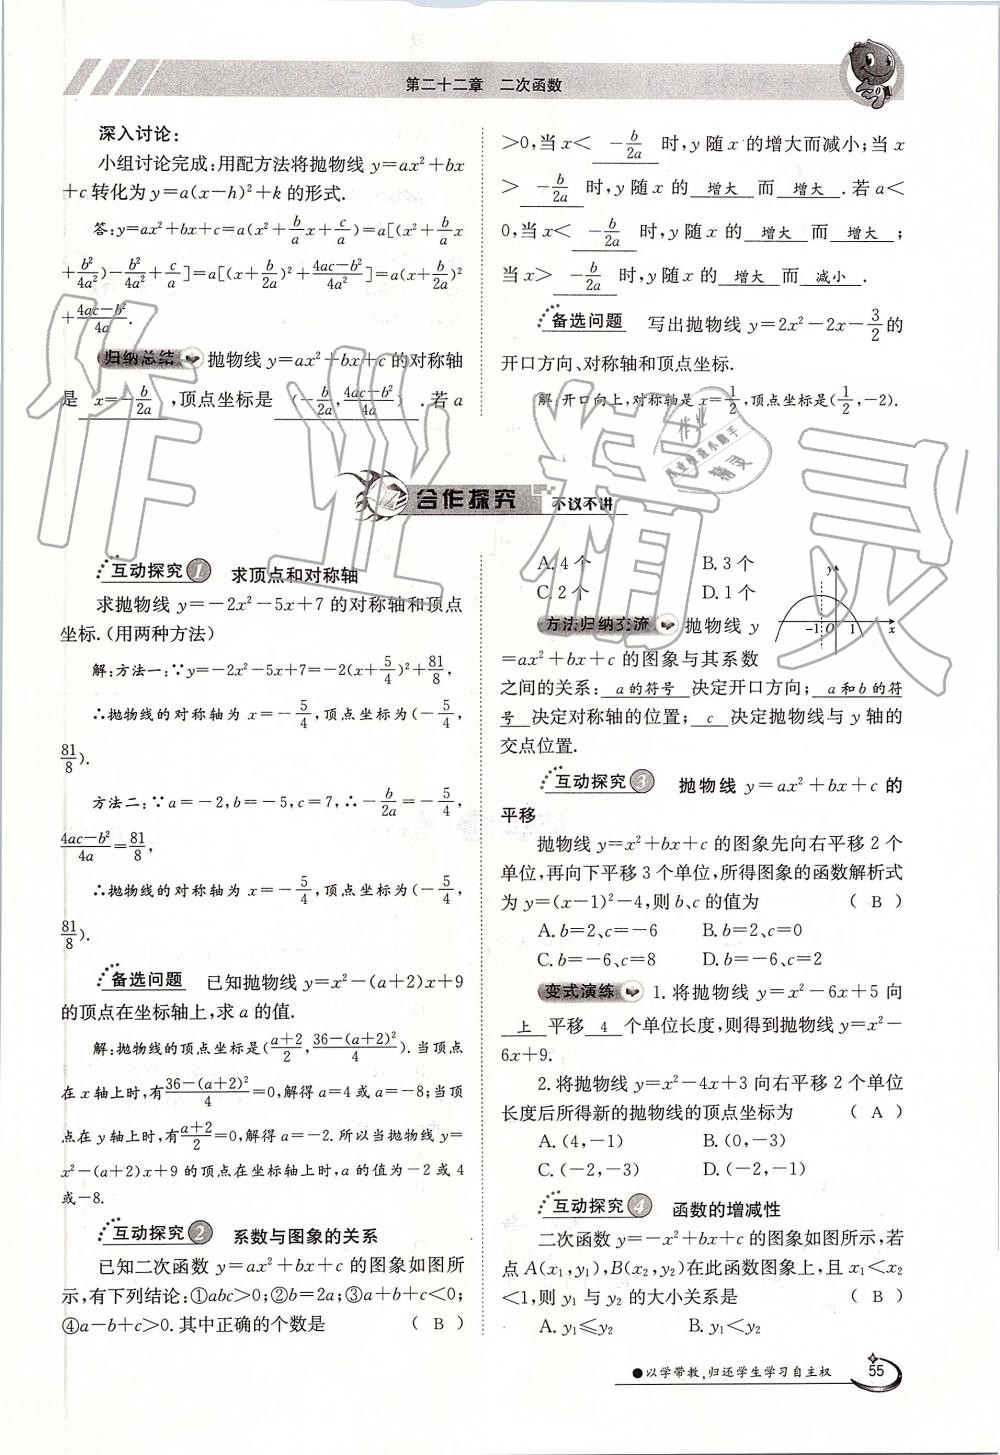 第二十二章　二次函数
深入讨论:
小组讨论完成:用配方法将抛物线 y=ax²+bx
+c转化为 y=a(x-h)²+k 的形式.
答:y=ax²+bx+c=a(x²+b/a x+c/a)=a[(x²+b/a x
+b²/4a²)-b²/4a²+c/a]=a[(x+b/2a)²+(4ac-b²)/4a²]=a(x+b/2a)²
+(4ac-b²)/4a.
归纳总结 抛物线 y=ax²+bx+c 的对称轴
是 x=-b/2a ,顶点坐标是 (-b/2a,(4ac-b²)/4a) .若 a
>0,当 x< -b/2a 时,y 随 x 的增大而减小;当 x
> -b/2a 时,y 随 x 的 增大 而 增大 .若 a<
0,当 x< -b/2a 时,y 随 x 的 增大 而 增大 ;
当 x> -b/2a 时,y 随 x 的 增大 而 减小 .
备选问题 写出抛物线 y=2x²-2x-3/2 的
开口方向、对称轴和顶点坐标.
解:开口向上,对称轴是 x=1/2,顶点坐标是(1/2,-2).
合作探究 不议不讲
互动探究1 求顶点和对称轴
求抛物线 y=-2x²-5x+7 的对称轴和顶点
坐标.(用两种方法)
解:方法一:∵y=-2x²-5x+7=-2(x+5/4)²+81/8,
∴抛物线的对称轴为 x=-5/4,顶点坐标为(-5/4,
81/8).
方法二:∵a=-2,b=-5,c=7,∴-b/2a=-5/4,
(4ac-b²)/4a=81/8,
∴抛物线的对称轴为 x=-5/4,顶点坐标为(-5/4,
81/8).
备选问题 已知抛物线 y=x²-(a+2)x+9
的顶点在坐标轴上,求 a 的值.
解:抛物线的顶点坐标是((a+2)/2,(36-(a+2)²)/4).当顶点
在 x 轴上时,有(36-(a+2)²)/4=0,解得 a=4 或 a=-8;当顶
点在 y 轴上时,有(a+2)/2=0,解得 a=-2.所以当抛物线 y=
x²-(a+2)x+9 的顶点在坐标轴上时,a 的值为-2 或 4
或-8.
互动探究2 系数与图象的关系
已知二次函数 y=ax²+bx+c 的图象如图所
示,有下列结论:①abc>0;②b=2a;③a+b+c<0;
④a-b+c>0.其中正确的个数是 ( B )
A.4 个 B.3 个
C.2 个 D.1 个
y
-1 O 1 x
方法归纳交流 抛物线 y
=ax²+bx+c 的图象与其系数
之间的关系: a 的符号 决定开口方向; a 和 b 的符
号 决定对称轴的位置; c 决定抛物线与 y 轴的
交点位置.
互动探究3 抛物线 y=ax²+bx+c 的
平移
抛物线 y=x²+bx+c 的图象先向右平移 2 个
单位,再向下平移 3 个单位,所得图象的函数解析式
为 y=(x-1)²-4,则 b、c 的值为 ( B )
A.b=2、c=-6 B.b=2、c=0
C.b=-6、c=8 D.b=-6、c=2
变式演练 1.将抛物线 y=x²-6x+5 向
上 平移 4 个单位长度,则得到抛物线 y=x²-
6x+9.
2.将抛物线 y=x²-4x+3 向右平移 2 个单位
长度后所得新的抛物线的顶点坐标为 ( A )
A.(4,-1) B.(0,-3)
C.(-2,-3) D.(-2,-1)
互动探究4 函数的增减性
二次函数 y=-x²+bx+c 的图象如图所示,若
点 A(x₁,y₁),B(x₂,y₂)在此函数图象上,且 x₁<x₂
<1,则 y₁ 与 y₂ 的大小关系是 ( B )
A.y₁≤y₂ B.y₁<y₂
●以学带教,归还学生学习自主权
55
作业精灵